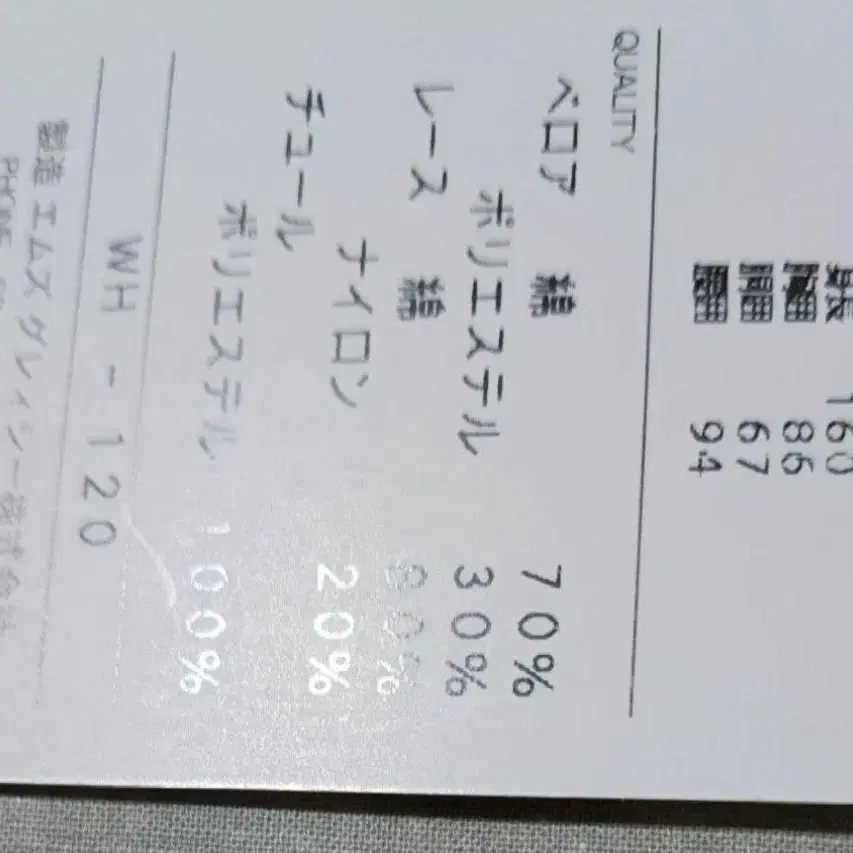 身長 160
胸囲 86
胴囲 67
腰囲 94
QUALITY
ベロア 綿 70%
ポリエステル 30%
レース 綿 80%
ナイロン 20%
チュール
ポリエステル 100%
WH - 120
製造 エムズグレィシー株式会社